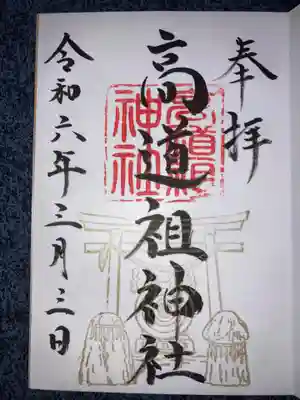 奉拝
高道祖神社
令和六年三月三日
高道祖
神社